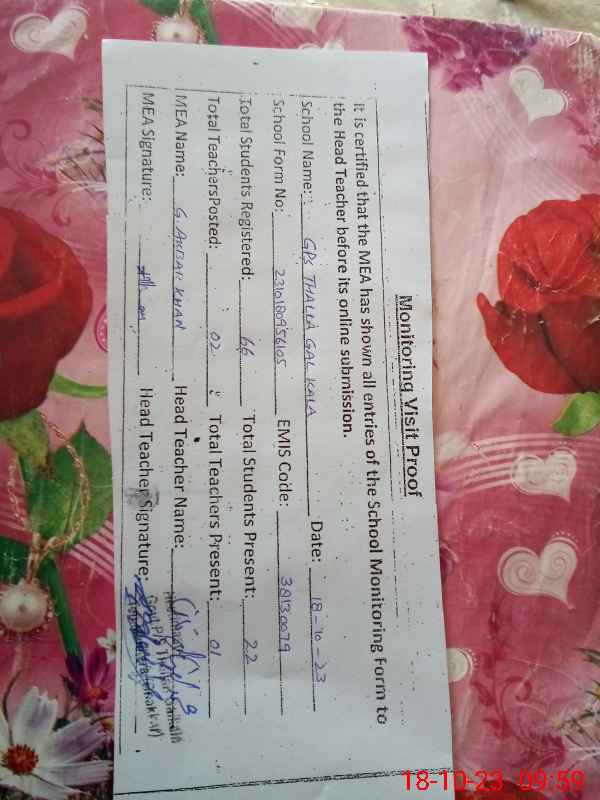 Monitoring Visit Proof
It is certified that the MEA has shown all entries of the School Monitoring Form to
the Head Teacher before its online submission.
School Name: GPS THALLA GAL KALA Date: 18-10-23
School Form No: 2310180956105 EMIS Code: 38130079
Total Students Registered: 66 Total Students Present: 22
Total Teachers Posted: 02 Total Teachers Present: 01
MEA Name: G. AKBAR KHAN Head Teacher Name:
MEA Signature: Head Teacher Signature:
18-10-23 09:59